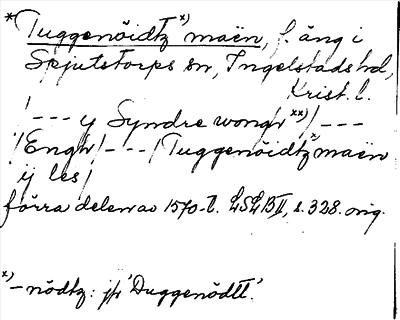 *Tuggenöidtz x) maën, f. äng i
Spjutstorps sn, Ingelstads hd,
Krist. l.
/--- y Syndre wongh xx)/---
/Engh/---/Tuggenöidtz x) maën
ij les/
förra delen av 1570-t. LSLB II, s. 328. orig.
x) -nödtz: jfr 'Duggenödtt'.